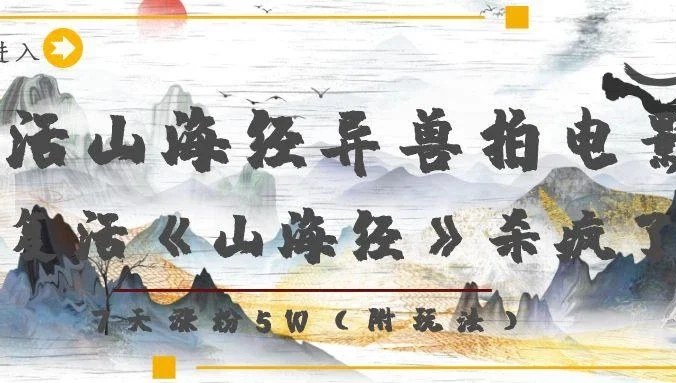 进入
活山海经异兽拍电影
复活《山海经》杀疯了
7天涨粉5W（附玩法）